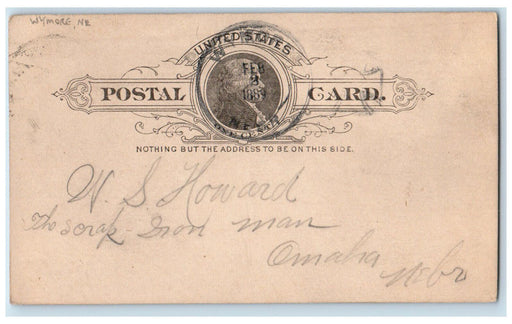 WYMORE, NE
UNITED STATES
FEB
2
1889
POSTAL CARD.
NEB
ONE CENT
NOTHING BUT THE ADDRESS TO BE ON THIS SIDE.
W. S Howard
The scrap-Iron man
Omaha
Nebr